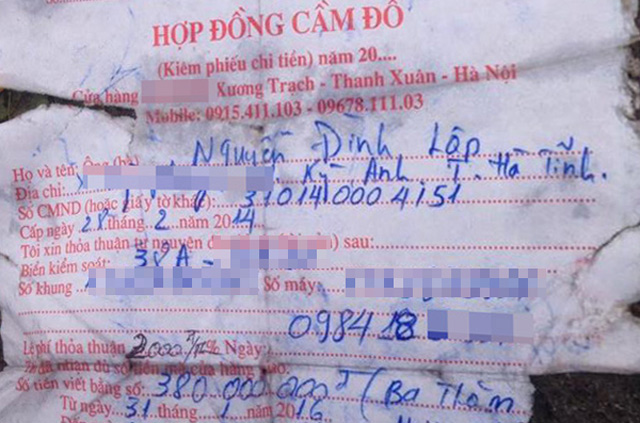 HỢP ĐỒNG CẦM ĐỒ
(Kiêm phiếu chi tiền) năm 20....
Cửa hàng Xương Trạch - Thanh Xuân - Hà Nội
Mobile: 0915.411.103 - 09678.111.03
Họ và tên: Ông (bà) Nguyễn Đình Lập
Địa chỉ: Kỳ Anh. T. Hà Tĩnh.
Số CMND (hoặc giấy tờ khác): 31014000 4151
Cấp ngày 28 tháng 2 năm 2014
Tôi xin thỏa thuận tự nguyện sau:
Biển kiểm soát: 38A -
Số khung Số máy:
0984 18
Lệ phí thỏa thuận 2000 Ngày
đã nhận đủ số tiền mà cửa hàng giao.
Số tiền viết bằng số: 380 000 000đ (Ba Trăm
Từ ngày 31 tháng 1 năm 2016